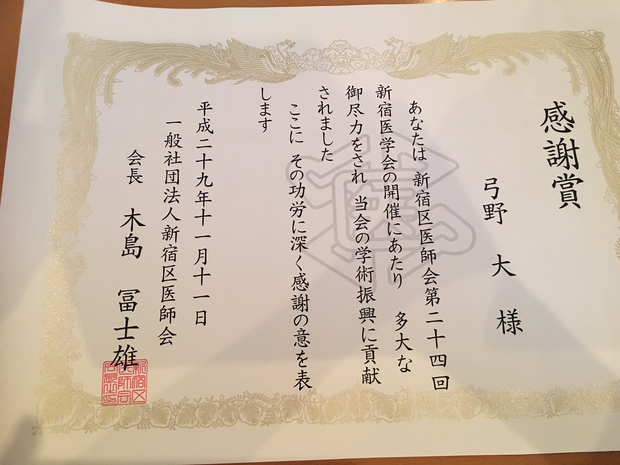 感謝賞
弓野 大 様
あなたは 新宿区医師会第二十四回
新宿医学会の開催にあたり 多大な
御尽力をされ 当会の学術振興に貢献
されました
ここに その功労に深く感謝の意を表
します
平成二十九年十一月十一日
一般社団法人新宿区医師会
会長 木島 冨士雄